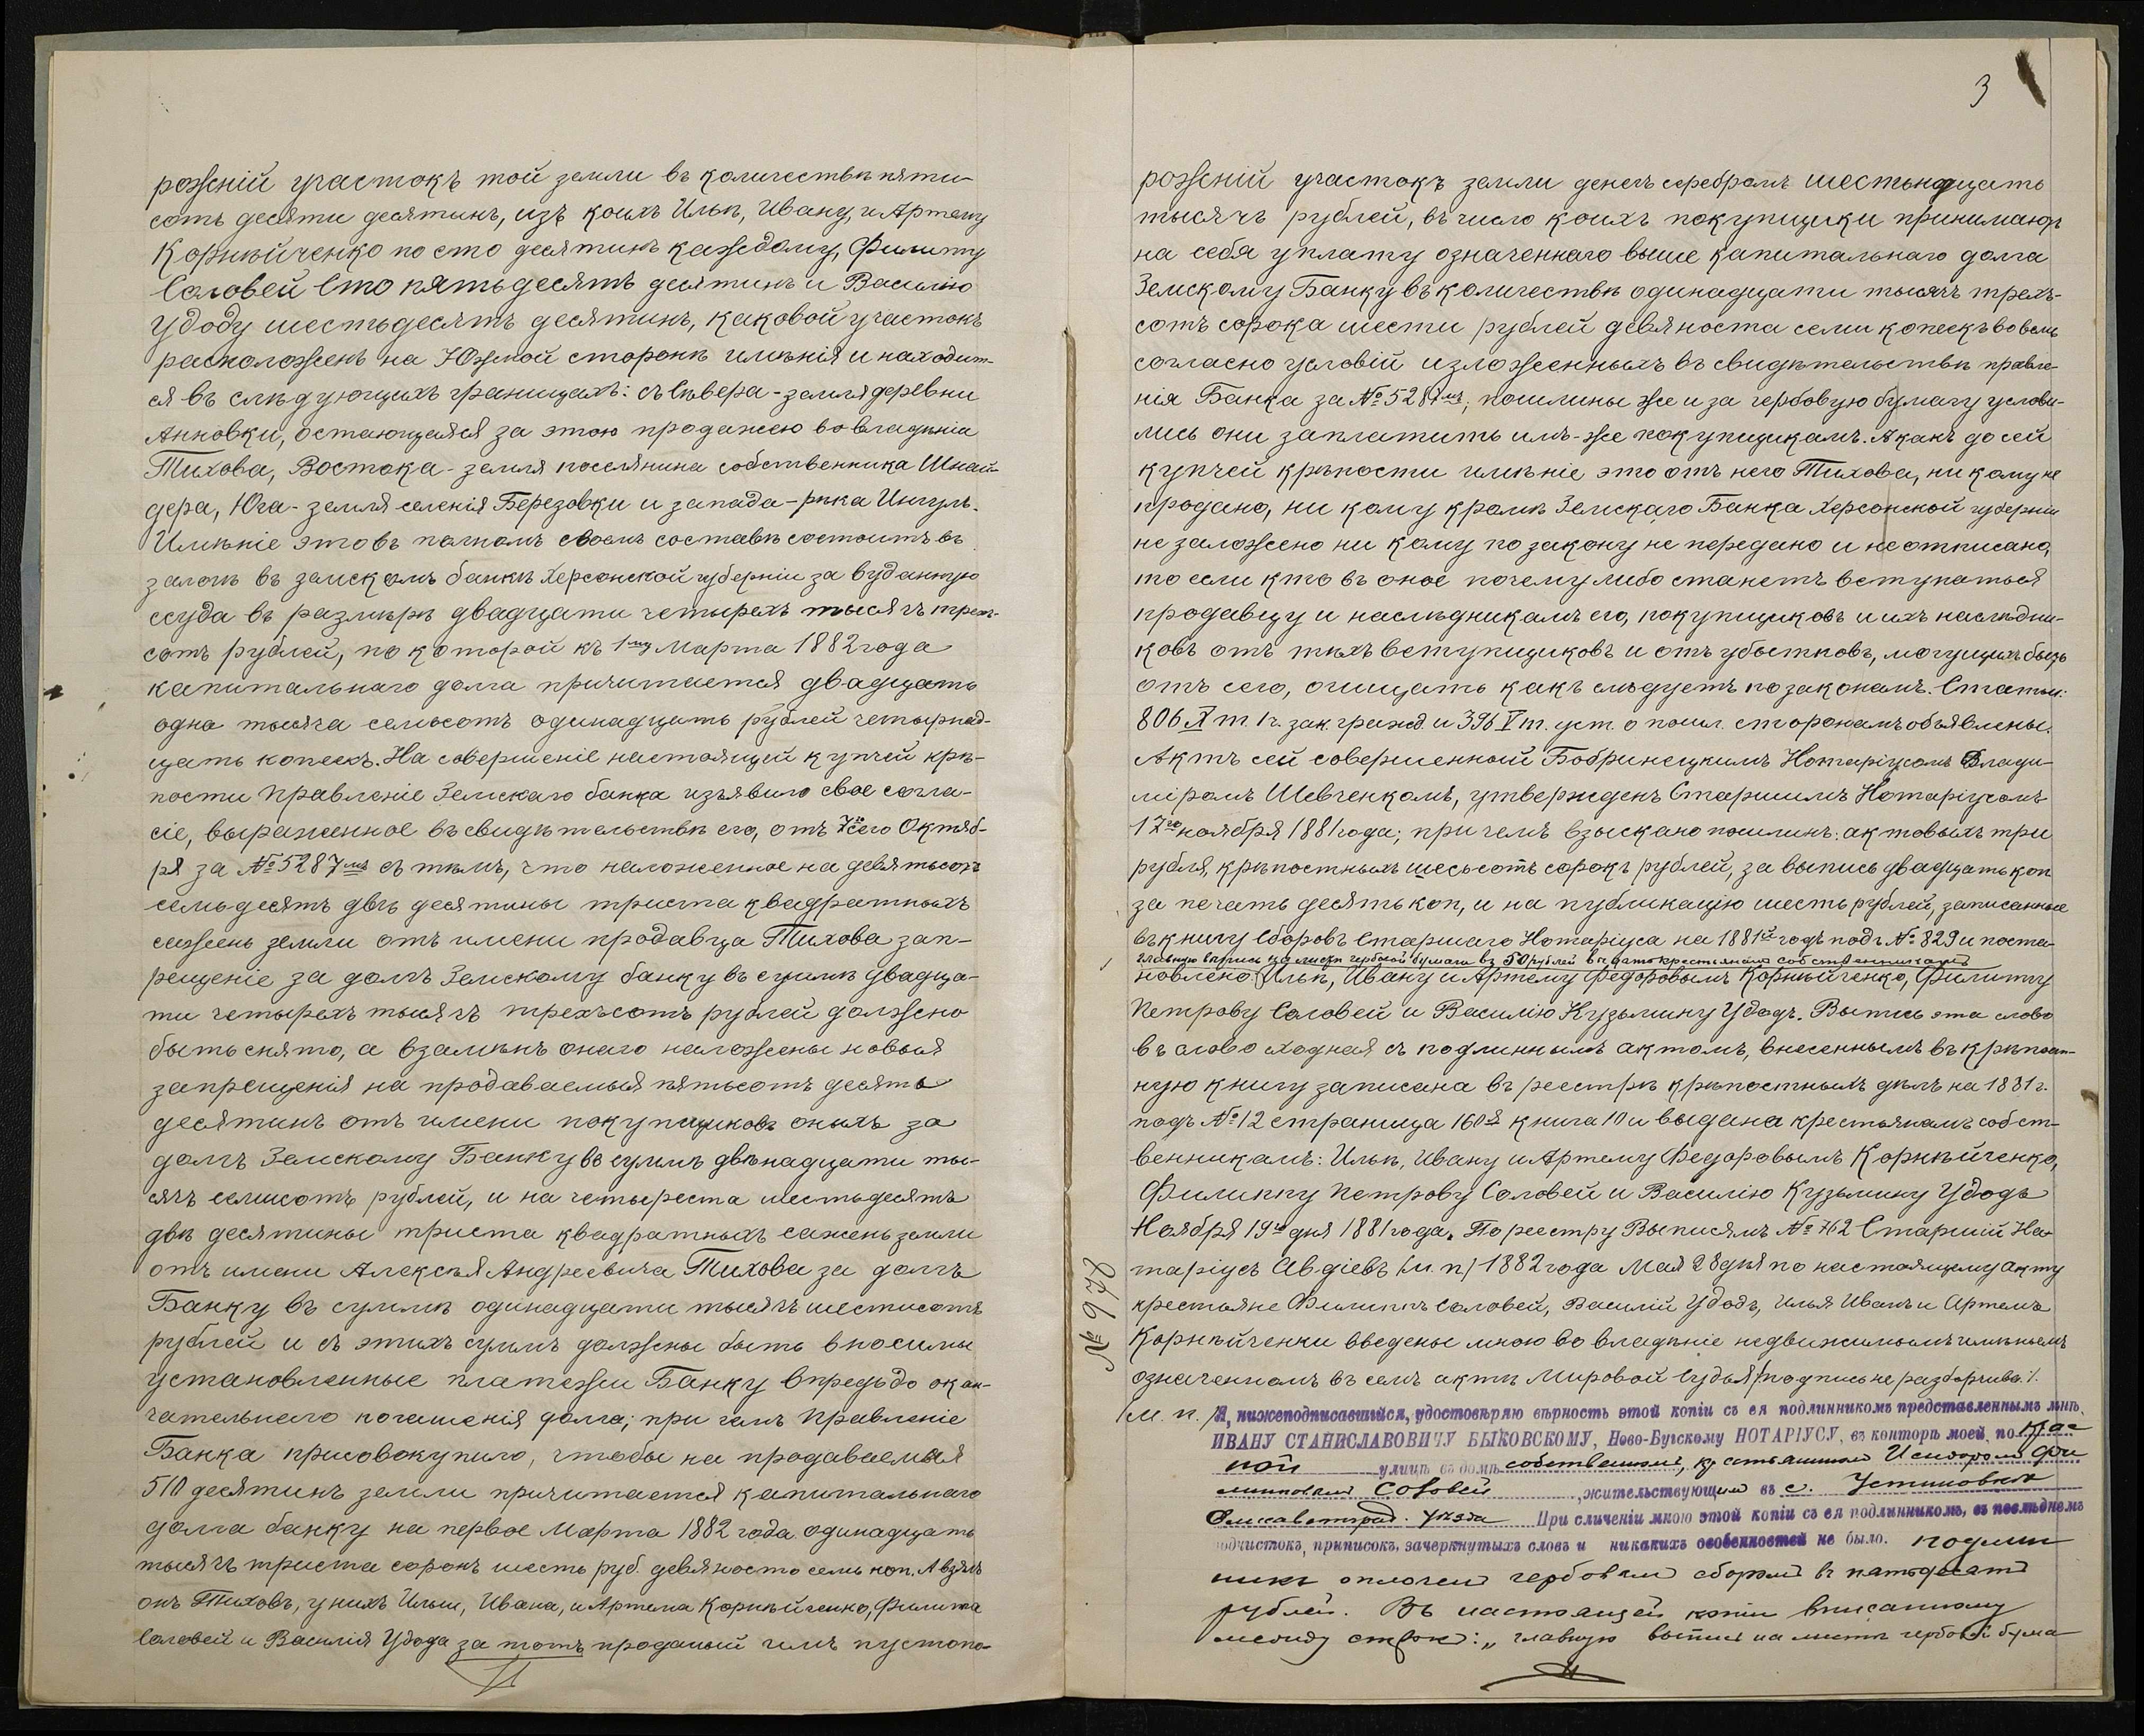 рожній участокъ той земли въ количествѣ пяти-
сотъ десяти десятинъ, изъ коихъ Ильѣ, Ивану, и Артему
Корнѣйченко по сто десятинъ каждому, Филипу
Соловей Сто пятьдесятъ десятинъ и Василію
Удоду шестьдесятъ десятинъ, каковой участокъ
расположенъ на Южной сторонѣ имѣнія и находит-
ся въ слѣдующихъ границахъ: съ Сѣвера - земля деревни
Анновки, остающаяся за этою продажею во владѣніи
Тихова, Востока - земля поселянина собственника Шнай-
дера, Юга - земля селенія Березовки и запада - рѣка Ингулъ.
Имѣніе это въ полномъ своемъ составѣ состоитъ въ
залогѣ въ земскомъ банкѣ Херсонской губерніи за выданную
ссуда въ размѣрѣ двадцати четырехъ тысячъ трех-
сотъ рублей, по которой къ 1му Марта 1882 года
капитальнаго долга причитается двадцать
одна тысяча семьсотъ одинадцать рублей четырнад-
цать копѣекъ. На совершеніе настоящей купчей крѣ-
пости Правленіе Земскаго банка изъявило свое согла-
сіе, выраженное въ свидѣтельствѣ его, отъ 7сего Октяб-
ря за № 5287мъ съ тѣмъ, что наложенное на девятьсотъ
семьдесятъ двѣ десятины триста квадратныхъ
сажень земли отъ имени продавца Тихова зап-
рещеніе за долгъ Земскому банку въ суммѣ двадца-
ти четырехъ тысячъ трехъсотъ рублей должено
быть снято, а взамѣнъ онаго наложены новыя
запрещенія на продаваемыя пятьсотъ десять
десятинъ отъ имени покупщиковъ оныхъ за
долгъ Земскому Банку въ суммѣ двѣнадцати ты-
сячъ семисотъ рублей, и на четыреста шестьдесятъ
двѣ десятины триста квадратныхъ сажень земли
отъ имени Алексѣя Андреевича Тихова за долгъ
Банку въ суммѣ одинадцати тысячъ шестисотъ
рублей и съ этихъ суммъ должны быть вносимы
установленные платежи Банку впредь до окон-
чательнаго погашенія долга; при чемъ Правленіе
Банка присовокупило, чтобы на продаваемыя
510 десятинъ земли причитается капитальнаго
долга банку на первое Марта 1882 года одинадцать
тысячъ триста сорокъ шесть руб. девяносто семь коп. А взялъ
онъ Тиховъ, у нихъ Ильи, Ивана, и Артема Корнѣйченко, Филипа
Соловей и Василія Удода за тотъ проданый имъ пустопо-
3
рожній участокъ земли денегъ серебромъ шестьнадцать
тысячъ рублей, въ число коихъ покупщики принимаютъ
на себя уплату означеннаго выше капитальнаго долга
Земскому Банку въ количествѣ одинадцати тысячъ трехъ-
сотъ сорока шести рублей девяноста семи копеекъ во всемъ
согласно условій изложенныхъ въ свидѣтельствѣ правле-
нія Банка за № 5287мъ; пошлины же и за гербовую бумагу услови-
лись они заплатить имъ-же покупщикамъ. А какъ до сей
купчей крѣпости имѣніе это отъ него Тихова, ни кому не
продано, ни кому кромѣ Земскаго Банка Херсонской губерніи
не заложено ни кому по закону не передано и не отписано,
то если кто въ оное почему либо станетъ вступаться
продавцу и наслѣдникамъ его, покупщиковъ и ихъ наслѣдни-
ковъ отъ тѣхъ вступщиковъ и отъ убытковъ, могущихъ быть
отъ сего, очищать какъ слѣдуетъ по законамъ. Статьи:
806 X т. 1 ч. зак. гражд. и 396 V т. уст. о пошл. сторонамъ объявлены.
Актъ сей совершенный Бобринецкимъ Нотаріусомъ Влади-
міромъ Шевченкомъ, утвержденъ Старшимъ Нотаріусомъ
17го ноября 1881 года; при чемъ взыскано пошлинъ: актовыхъ три
рубля, крѣпостныхъ шесьсотъ сорокъ рублей, за выпись двадцать коп
за печать десять коп, и на публикацію шесть рублей, записанные
въ книгу Сборовъ Старшаго Нотаріуса на 1881й годъ подъ № 829 и поста-
главную выпись на листѣ гербовой бумаги въ 50 рублей выдать крестьянамъ собственникамъ
новлено: Ильѣ, Ивану и Артему Федоровымъ Корнѣйченко, Филипу
Петрову Соловей и Василію Кузьмину Удодъ. Выпись эта слово
въ слово сходная съ подлиннымъ актомъ, внесеннымъ въ крѣпост-
ную книгу записана въ реестрѣ крѣпостныхъ дѣлъ на 1881 г.
подъ № 12 страница 160я книга 10 и выдана крестьянамъ собст-
венникамъ: Ильѣ, Ивану и Артему Федоровымъ Корнѣйченко,
Филиппу Петрову Соловей и Василію Кузьмину Удодъ
Ноября 19го дня 1881 года. По реестру Выписямъ № 762 Старшій Но-
таріусъ Авдіевъ (м. п) 1882 года Мая 28 дня по настоящему акту
крестьяне Филиппъ Соловей, Василій Удодъ, Илья Иванъ и Артемъ
Корнѣйченки введены мною во владѣніе недвижимымъ имѣніемъ
означенномъ въ семъ актѣ Мировой Судья /подпись не разборчива/.
№ 932
/м. п./ Я, нижеподписавшійся, удостовѣряю вѣрность этой копіи съ ея подлинникомъ представленнымъ мнѣ,
ИВАНУ СТАНИСЛАВОВИЧУ БЫКОВСКОМУ, Ново-Бугскому НОТАРІУСУ, въ конторѣ моей, по
улицѣ въ домѣ собственномъ, крестьяниномъ Исидоромъ Фи
липовымъ Соловей, жительствующимъ въ с. Устиновкѣ
Елисаветград. уѣзда При сличеніи мною этой копіи съ ея подлинникомъ, въ послѣднемъ
подчистокъ, приписокъ, зачеркнутыхъ словъ и никакихъ особенностей не было. подлин
никъ оплоченъ гербовымъ сборомъ въ пятьдесятъ
рублей. Въ настоящей копіи вписанному
между строкъ: „главную выпись на листѣ гербовой бума